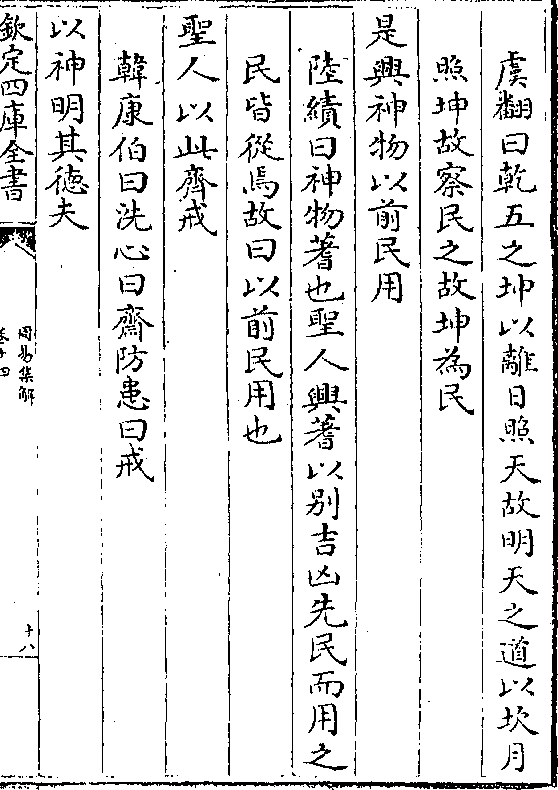 虞翻曰乾五之坤以離日照天故明天之道以坎月
照坤故察民之故坤為民
是興神物以前民用
陸績曰神物蓍也聖人興蓍以别吉凶先民而用之
民皆從焉故曰以前民用也
聖人以此齊戒
韓康伯曰洗心曰齋防患曰戒
以神明其德夫
欽定四庫全書
周易集解
卷十四
十八